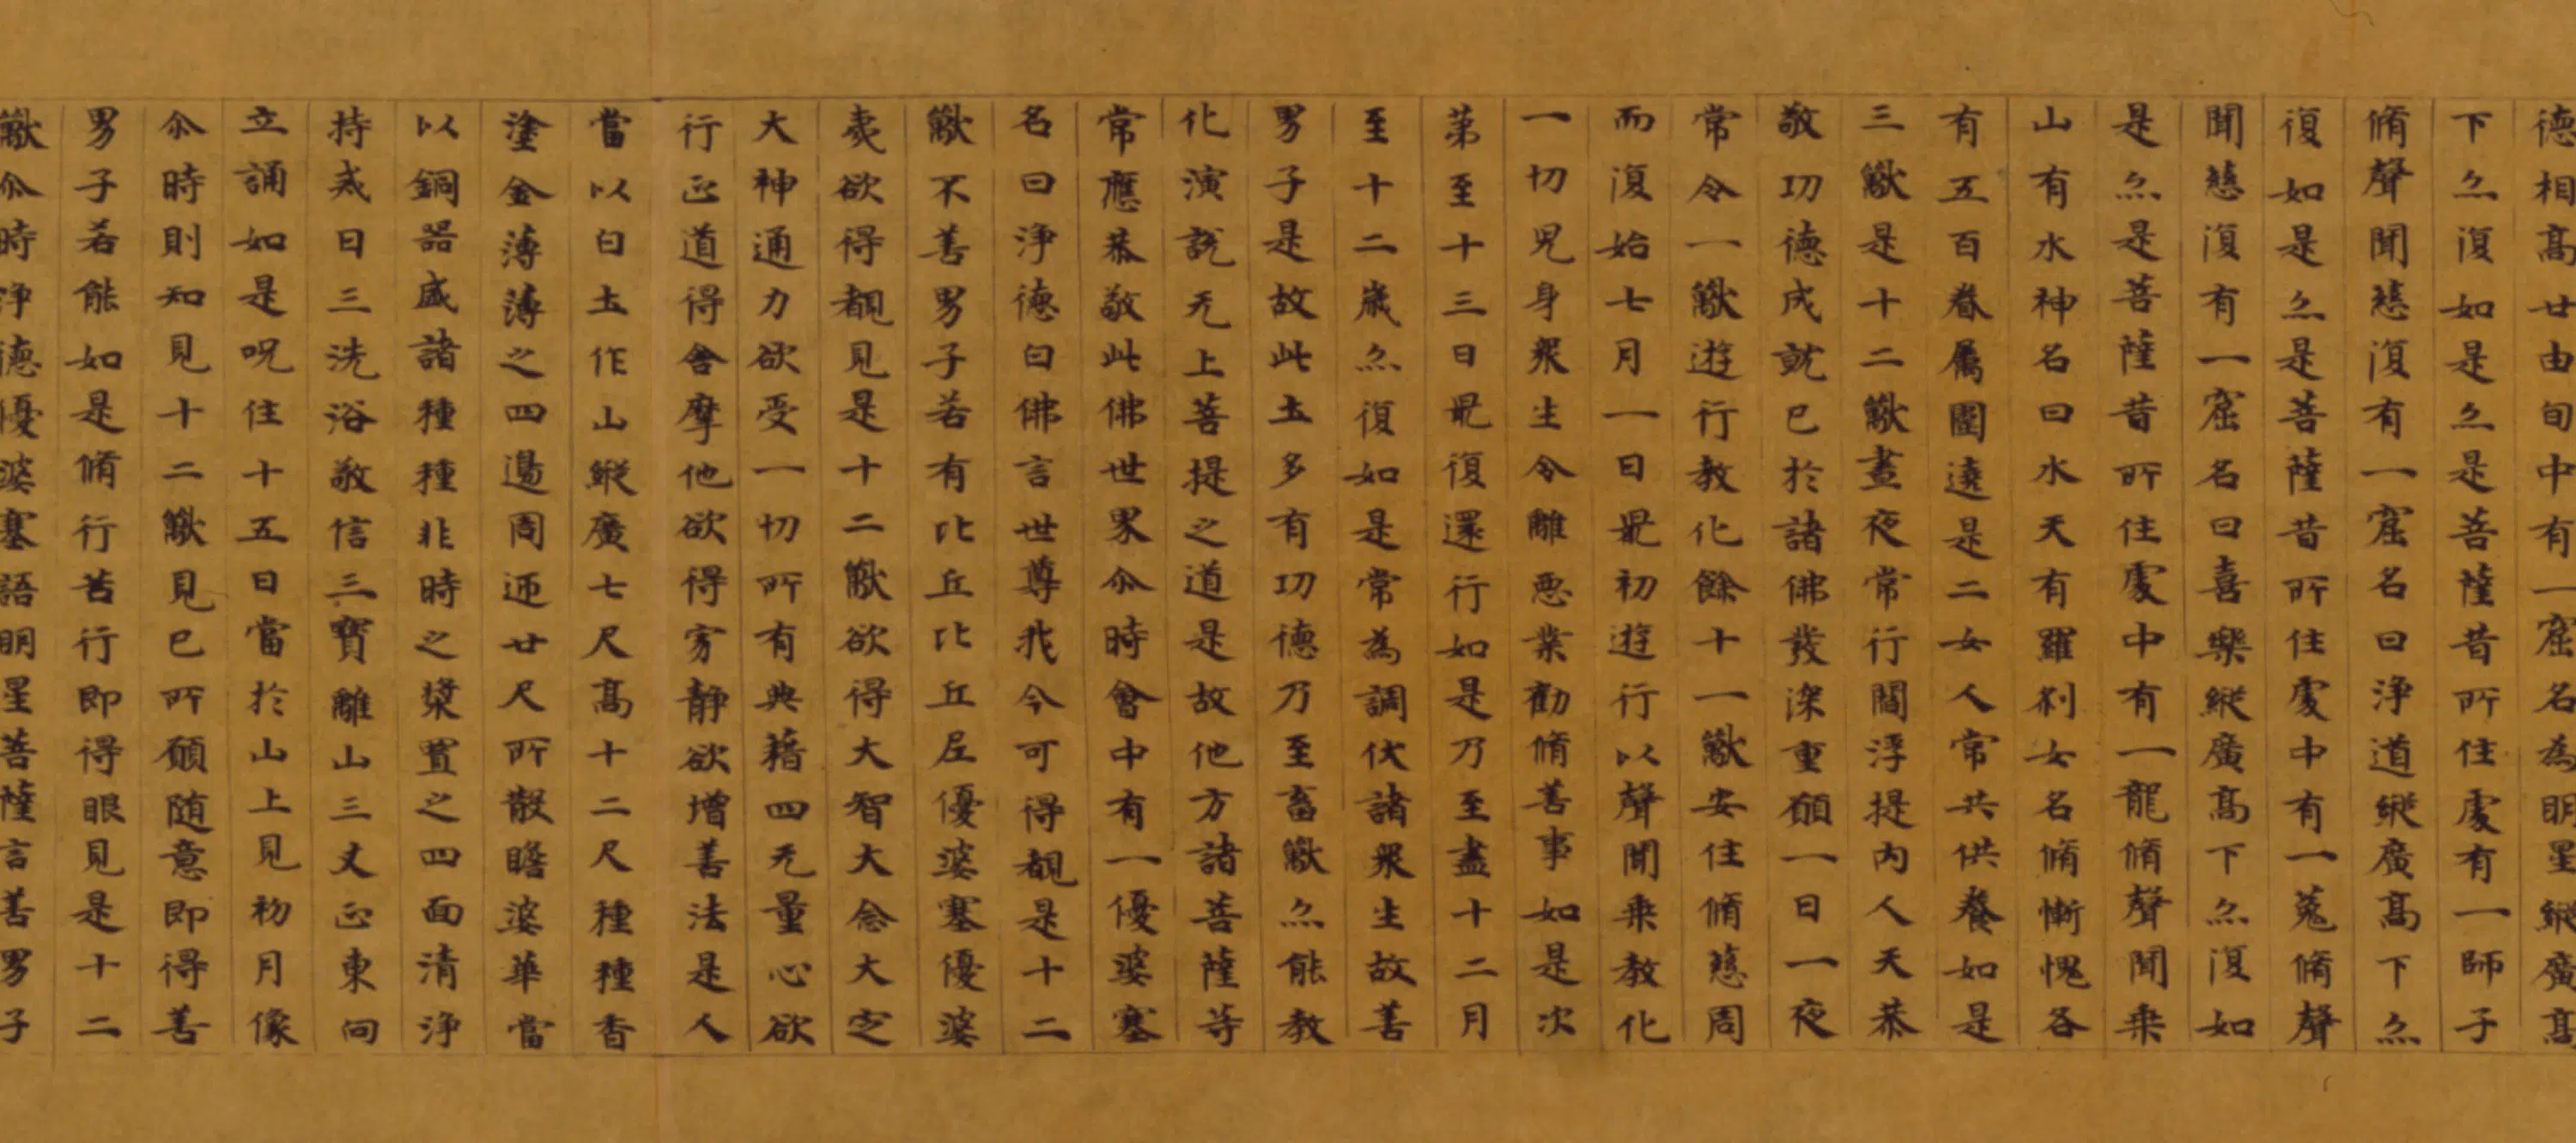 德相高廿由旬中有一窟名為明星縱廣高
下亦復如是亦是菩薩昔所住處有一師子
脩聲聞慈復有一窟名曰淨道縱廣高下亦
復如是亦是菩薩昔所住處中有一菟脩聲
聞慈復有一窟名曰喜樂縱廣高下亦復如
是亦是菩薩昔所住處中有一龍脩聲聞乗
山有水神名曰水天有羅刹女名脩慚愧各
有五百眷屬圍遶是二女人常共供養如是
三獸是十二獸晝夜常行閻浮提内人天恭
敬功德成就已於諸佛發深重願一日一夜
常令一獸遊行教化餘十一獸安住脩慈周
而復始七月一日㝡初遊行以聲聞乗教化
一切兒身衆生令離惡業勸脩善事如是次
第至十三日㝡復還行如是乃至盡十二月
至十二歲亦復如是常為調伏諸衆生故善
男子是故此土多有功德乃至畜獸亦能教
化演說无上菩提之道是故他方諸菩薩等
常應恭敬此佛世界尒時會中有一優婆塞
名曰淨德白佛言世尊我今可得覩是十二
獸不善男子若有比丘比丘尼優婆塞優婆
夷欲得覩見是十二獸欲得大智大念大定
大神通力欲受一切所有典藉四无量心欲
行正道得舍摩他欲得寂靜欲增善法是人
當以白土作山縱廣七尺高十二尺種種香
塗金薄薄之四邊周迊廿尺所散瞻婆華當
以銅器盛諸種種非時之漿置之四面清淨
持戒日三洗浴敬信三寶離山三丈正東向
立誦如是呪住十五日當於山上見初月像
尒時則知見十二獸見已所願随意即得善
男子若能如是脩行苦行即得眼見是十二
獸尒時淨德優婆塞語明星菩薩言善男子